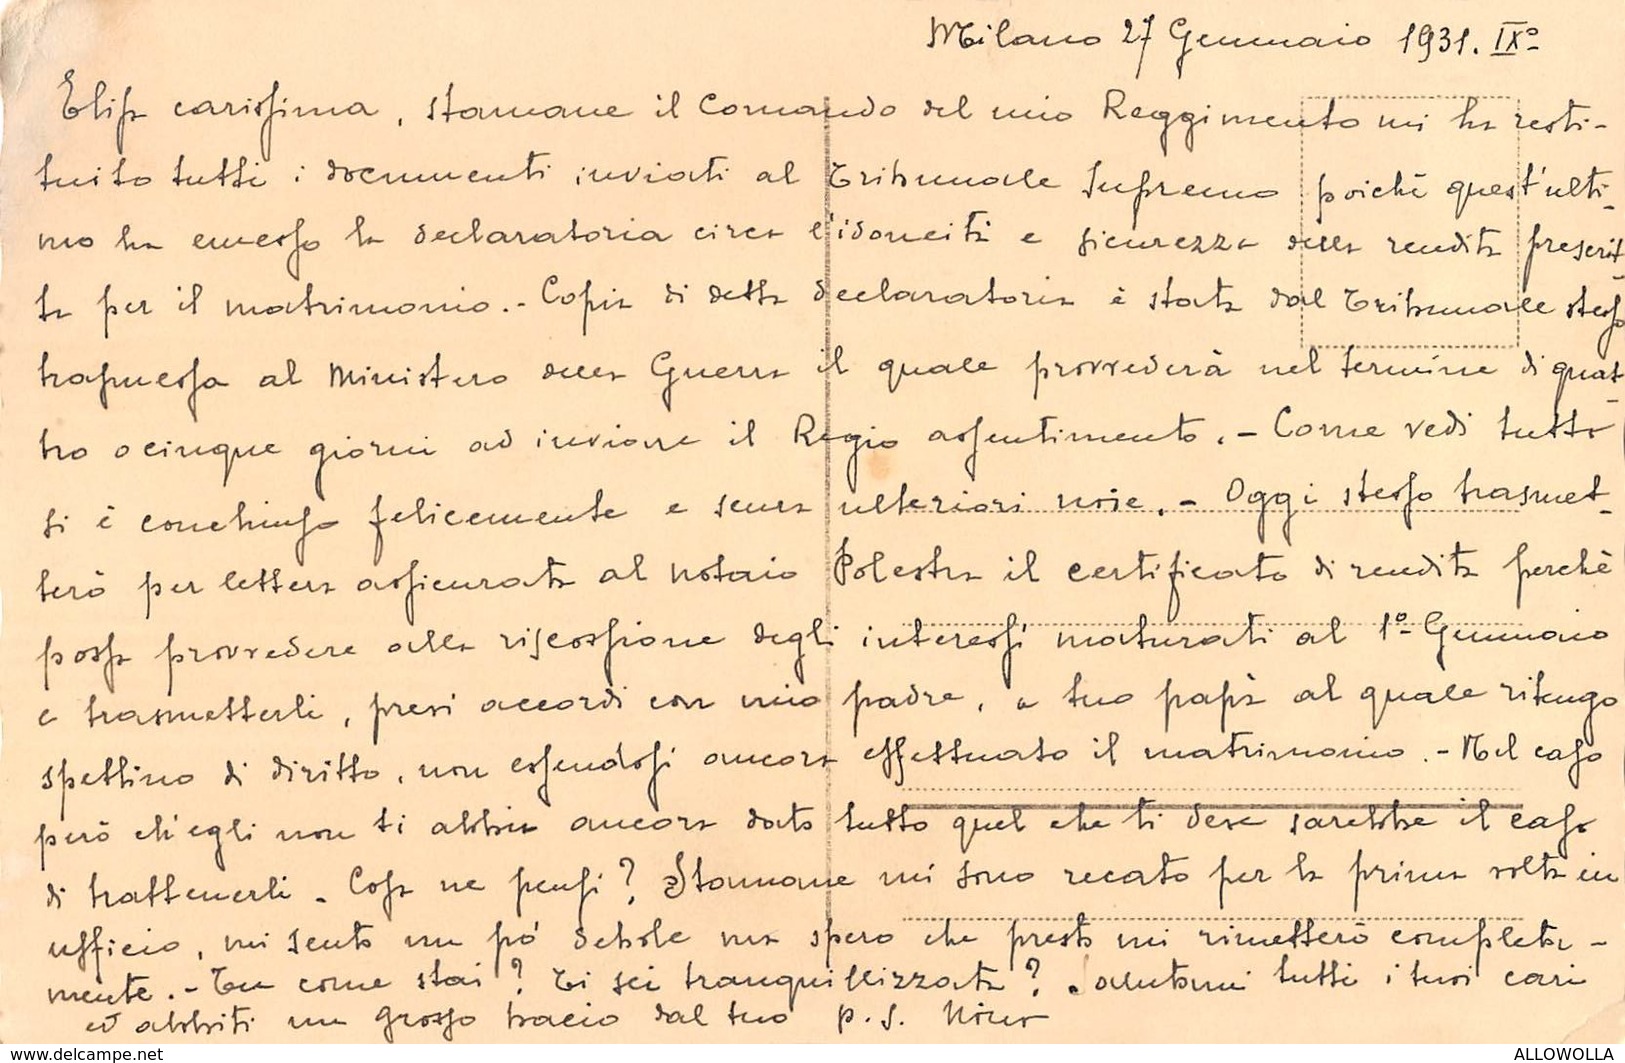 Milano 27 Gennaio 1931. IXº
Elisa carissima, stamane il Comando del mio Reggimento mi ha resti-
tuito tutti i documenti inviati al Tribunale Supremo poichè quest'ulti-
mo ha emesso la declaratoria circa l'idoneità e sicurezza della rendita prescrit-
ta per il matrimonio.- Copia di detta declaratoria è stata dal Tribunale stesso
trasmessa al Ministero della Guerra il quale provvederà nel termine di quat-
tro o cinque giorni ad inviare il Regio assentimento.- Come vedi tutto
si è conchiuso felicemente e senza ulteriori noie.- Oggi stesso trasmet-
terò per lettera assicurata al notaio Polestra il certificato di rendita perchè
possa provvedere alla riscossione degli interessi maturati al 1º Gennaio
e trasmetterli, presi accordi con mio padre, a tuo papà al quale ritengo
spettino di diritto, non essendosi ancora effettuato il matrimonio.- Nel caso
però ch'egli non ti abbia ancora dato tutto quel che ti deve sarebbe il caso
di trattenerli. Cosa ne pensi? Stamane mi sono recato per la prima volta in
ufficio, mi sento un pò debole ma spero che presto mi rimetterò completa-
mente.- Tu come stai? Ti sei tranquillizzata? Salutami tutti i tuoi cari
ed abbiti un grosso bacio dal tuo p.s. Nino
www.delcampe.net
ALLOWOLLA